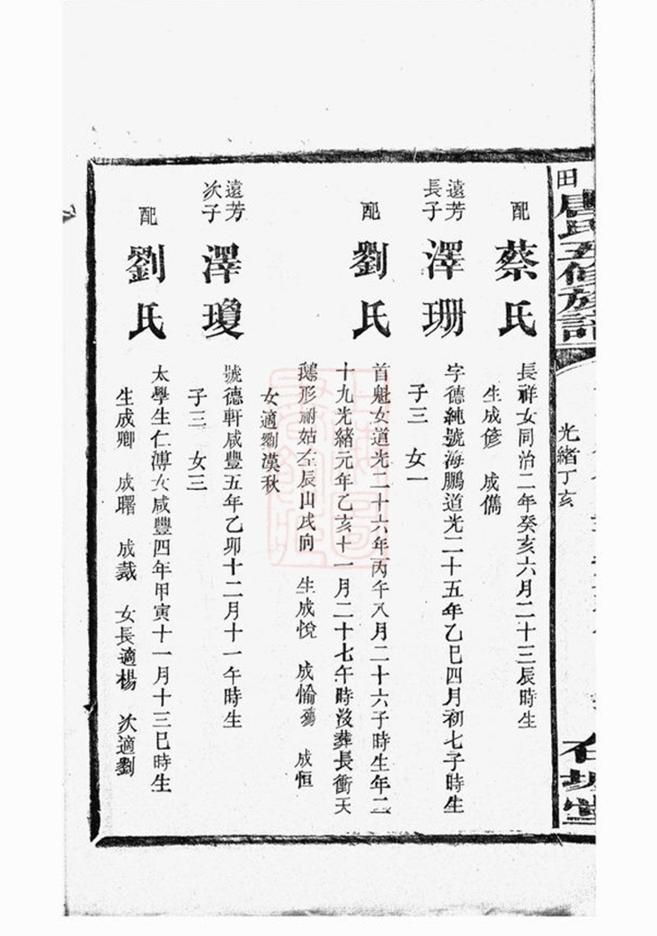 田
氏五修族譜
光緒丁亥
配
蔡氏
長祥女同治二年癸亥六月二十三辰時生
生成偐 成儁
遠芳
長子
澤珊
字德純號海鵬道光二十五年乙巳四月初七子時生
子三 女一
配
劉氏
首魁女道光二十六年丙午八月二十六子時生年二
十九光緒元年乙亥十一月二十七午時沒葬長衝天
鵝形祔姑左辰山戌向 生成悅 成愉 成恒
女適劉漢秋
遠芳
次子
澤瓊
號德軒咸豐五年乙卯十二月十一午時生
子三 女三
配
劉氏
太學生仁溥女咸豐四年甲寅十一月十三巳時生
生成卿 成曙 成戴 女長適楊 次適劉